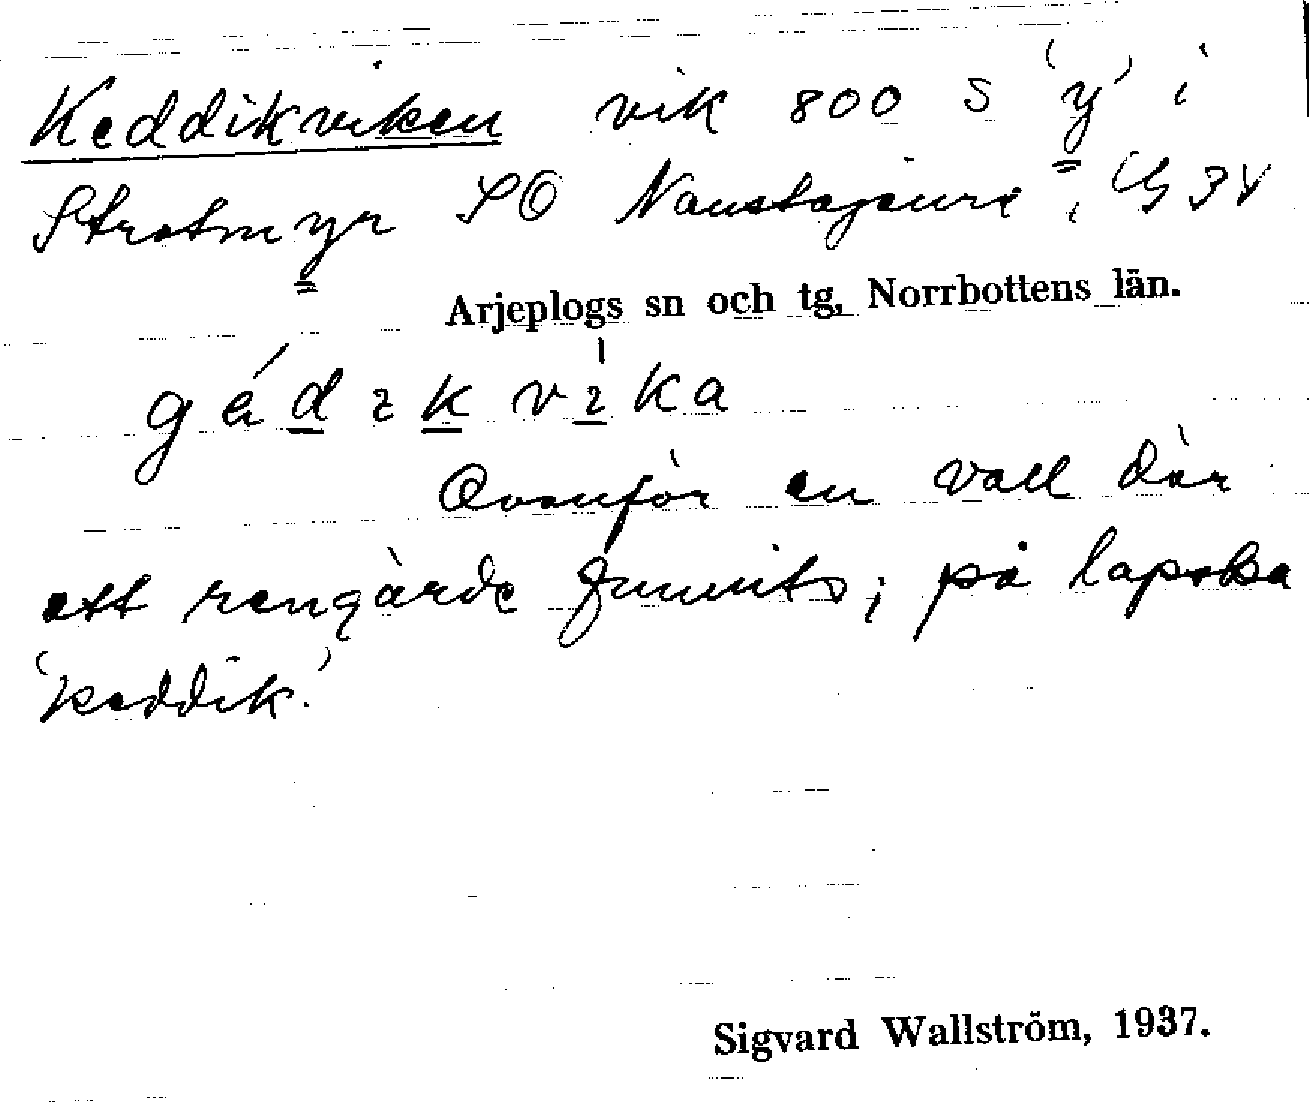 Keddikviken vik 800 S 'y' i
Stratmyr SO Naustajaure, G 3V
Arjeplogs sn och tg, Norrbottens län.
gédɩk vɩ̄ka
Ovanför en vall där
ett rengärde funnits; på lapska
'keddik'.
Sigvard Wallström, 1937.